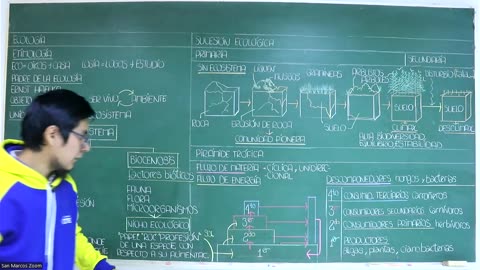 ECOLOGÍA
ETIMOLOGÍA
ECO=OIKOS=CASA LOGÍA=LOGOS=ESTUDIO
PADRE DE LA ECOLOGÍA
ERNST
SER VIVO AMBIENTE
BIOCENOSIS
factores bióticos
FAUNA
FLORA
MICROORGANISMOS
NICHO ECOLÓGICO
"PAPEL" ROL "PROFESIÓN"
DE UNA ESPECIE CON
RESPECTO A SU ALIMENTAC.
SUCESIÓN ECOLÓGICA
PRIMARIA
SECUNDARIA
SIN ECOSISTEMA
LIQUEN
MUSGOS
GRAMÍNEAS
ARBUSTOS
ÁRBOLES
ROCA
EROSIÓN DE ROCA
COMUNIDAD PIONERA
SUELO
SUELO
CLIMAX
ALTA BIODIVERSIDAD
EQUILIBRIO, ESTABILIDAD
SUELO
DISCLIMAX
PIRÁMIDE TRÓFICA
FLUJO DE MATERIA → CÍCLICA, UNIDIREC-
FLUJO DE ENERGÍA CIONAL
4to
3°
2do
1er
DESCOMPONEDORES: hongos, bacterias
4to CONSUMID. TERCIARIOS: Carnívoros
3er CONSUMIDORES SECUNDARIOS: Carnívoros
2do CONSUMIDORES PRIMARIOS: herbívoros
1er PRODUCTORES:
algas, plantas, cianobacterias
San Marcos Zoom